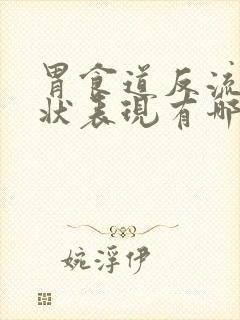 胃食道反流
状表现有哪
婉浮伊